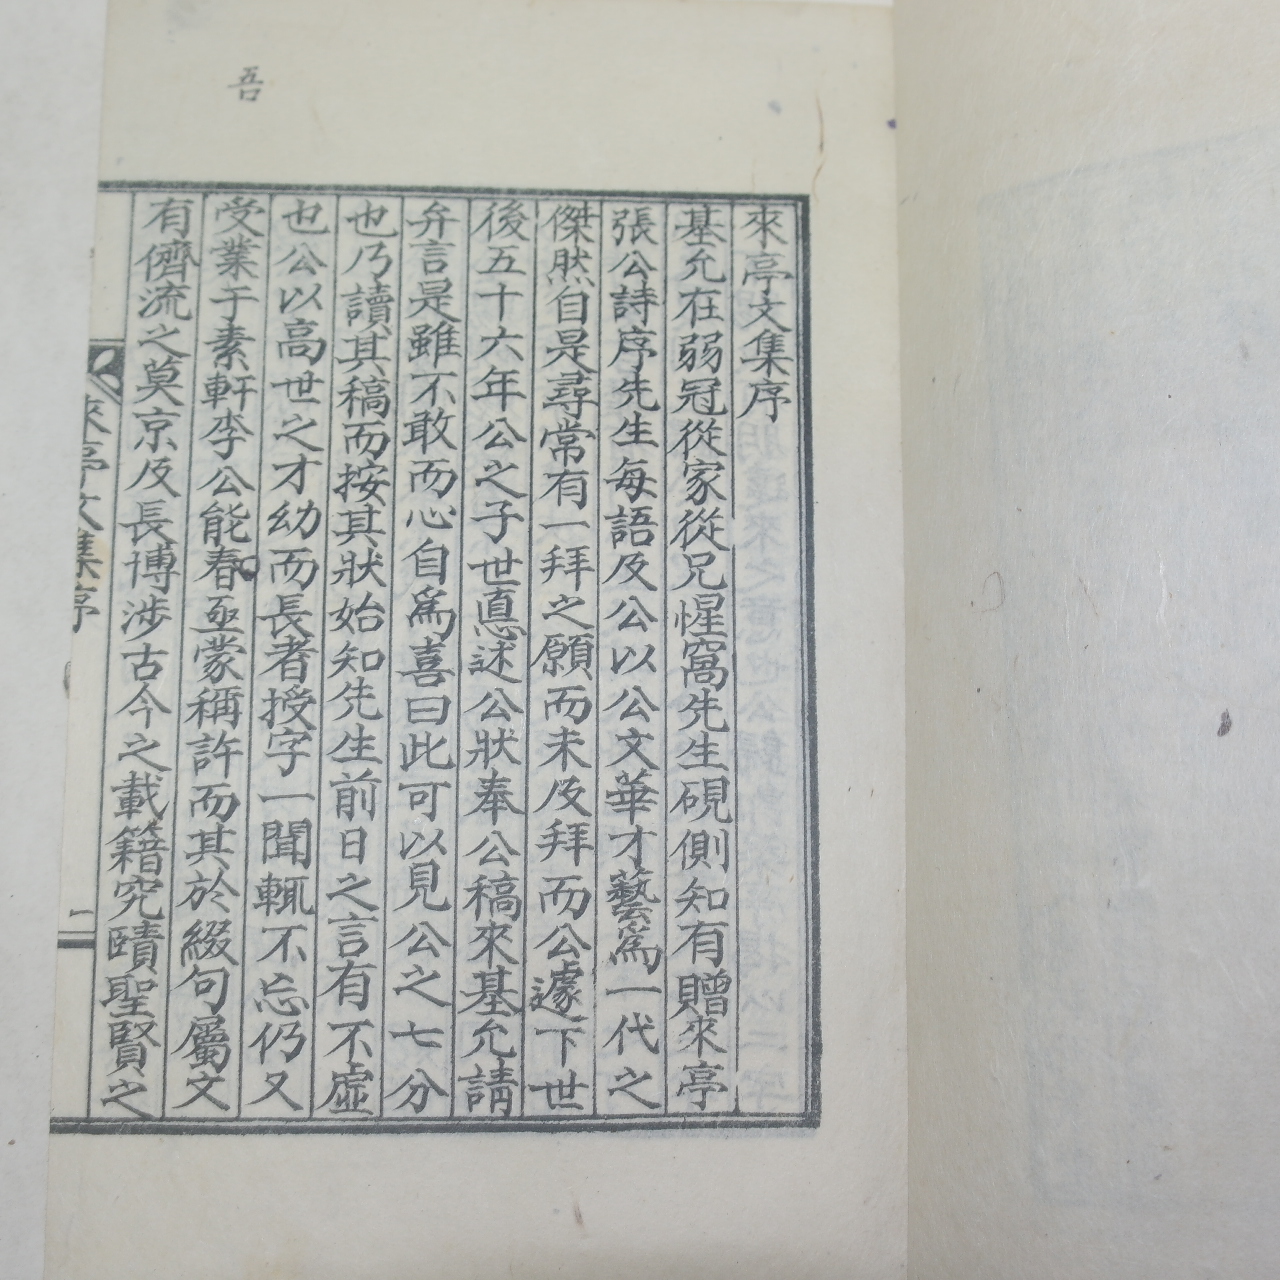 吾
來亭文集序
基允在弱冠從家從兄惺窩先生硯側知有贈來亭
張公詩序先生每語及公以公文華才藝爲一代之
傑然自是尋常有一拜之願而未及拜而公遽下世
後五十六年公之子世悳述公狀奉公稿來基允請
弁言是雖不敢而心自爲喜曰此可以見公之七分
也乃讀其稿而按其狀始知先生前日之言有不虛
也公以高世之才幼而長者授字一聞輒不忘仍又
受業于素軒李公能春亟蒙稱許而其於綴句屬文
有儕流之莫京及長博涉古今之載籍究賾聖賢之
來亭文集序
二